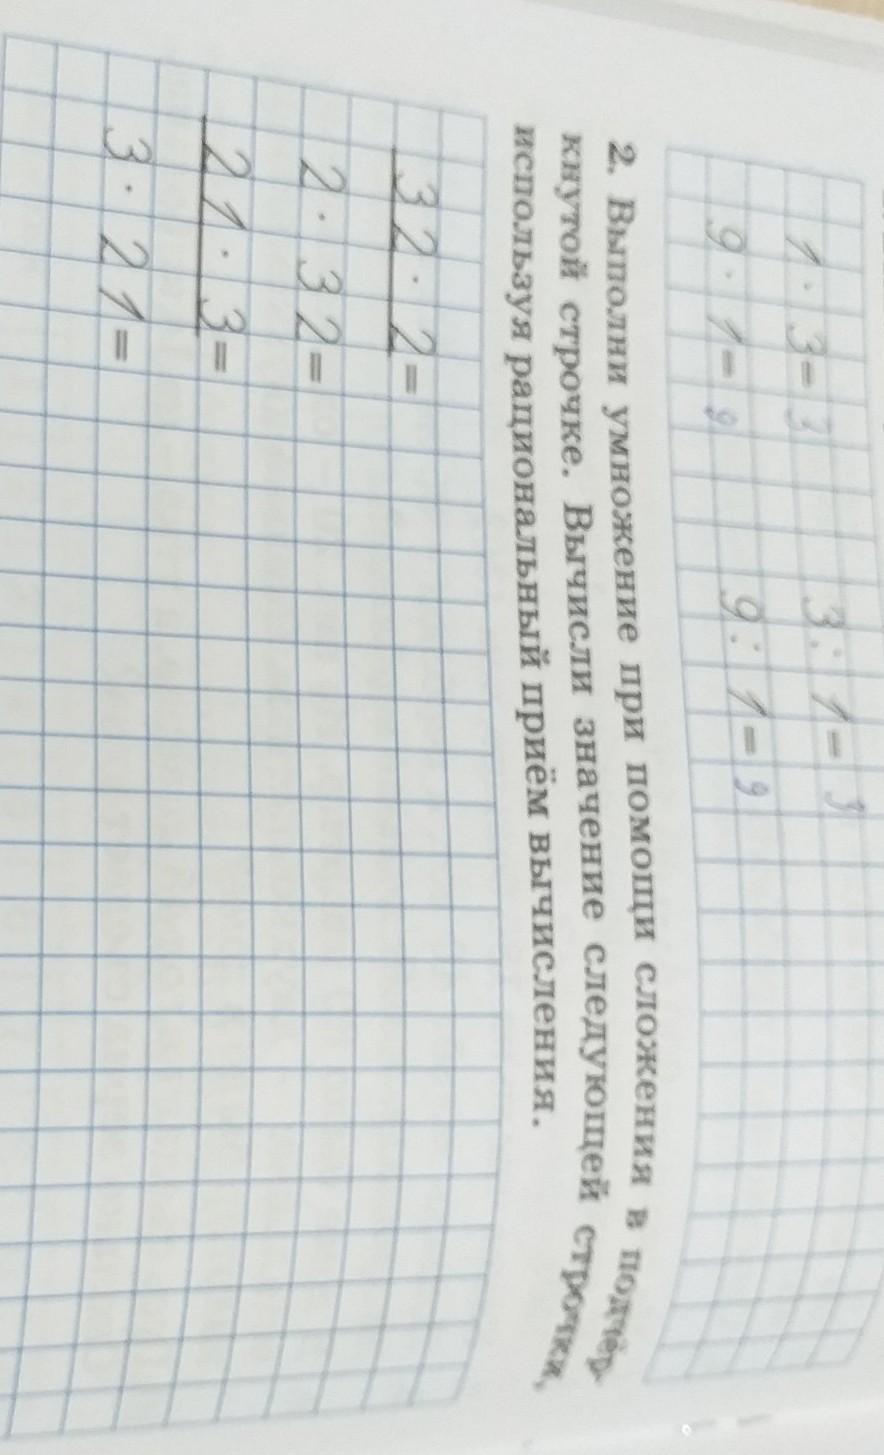 1 · 3 = 3 3 : 1 = 3
9 · 1 = 9 9 : 1 = 9
2. Выполни умножение при помощи сложения в подчёр-
кнутой строчке. Вычисли значение следующей строчки,
используя рациональный приём вычисления.
32 · 2 =
2 · 32 =
21 · 3 =
3 · 21 =